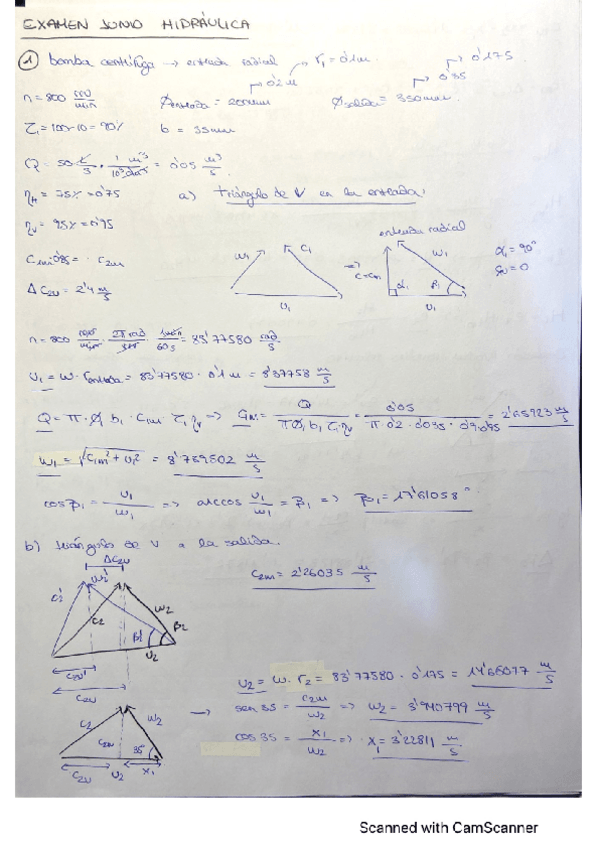 EXAMEN JUNIO HIDRÁULICA
① bomba centrífuga → entrada radial r₁ = 0'1m. 0'175
0'2m 0'35
n = 800 rev/min ϕentrada = 200mm ϕsalida = 350mm.
τ₁ = 100-10 = 90% b = 35mm
Q = 50 L/s · 1 m³/10³dm³ = 0'05 m³/s.
ηH = 75% = 0'75 a) triángulo de V en la entrada:
ηv = 95% = 0'95
entrada radial
C1m 0'85 = C2m w₁ c₁ ⇒ c₁=c1m w₁ α₁ = 90°
α₁ β₁
ΔC2u = 2'4 m/s U₁ U₁
n = 800 rev/min · 2π rad/rev · 1min/60s = 83'77580 rad/s.
U₁ = w · rentrada = 83'77580 · 0'1m = 8'37758 m/s
Q = π · ϕ₁ b₁ · C1m · τ₁ ηv → C1m = Q/(π ϕ₁ b₁ τ₁ · ηv) = 0'05/(π · 0'2 · 0'035 · 0'9 · 0'95) = 2'65923 m/s
w₁ = √(c1m² + U₁²) = 8'789502 m/s
cosβ₁ = U₁/w₁ ⇒ arccos U₁/w₁ = β₁ ⇒ β₁ = 17'61058°
b) triángulo de V a la salida.
ΔC2u
w₂' C2m = 2'26035 m/s
c₂' c₂ w₂
β₂' β₂
U₂
C2u'
C2u U₂ = w · r₂ = 83'77580 · 0'175 = 14'66077 m/s
→ sen 35 = C2m/w₂ ⇒ w₂ = 3'940799 m/s
c₂ w₂
C2m 35° cos 35 = x₁/w₂ ⇒ x₁ = 3'22811 m/s
C2u U₂ x₁
Scanned with CamScanner